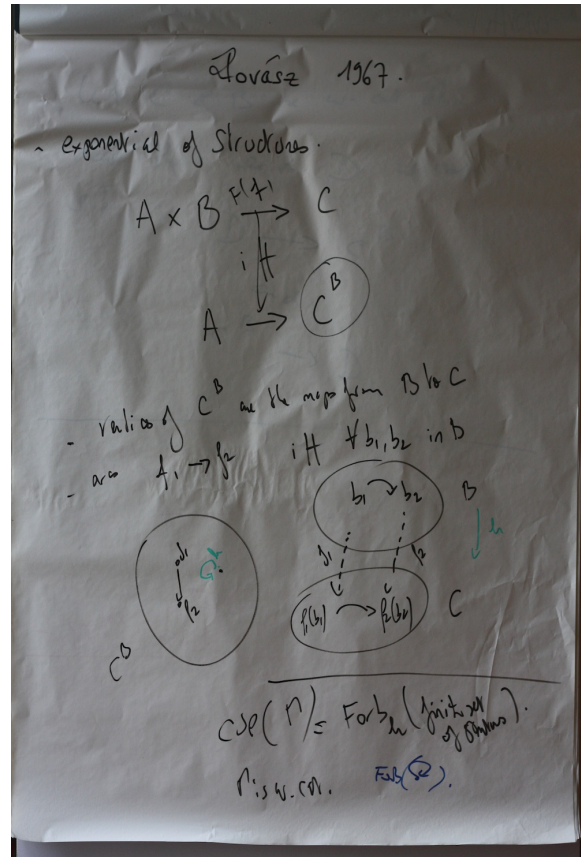 Lovász 1967.
- exponential of structures.
A × B → C
iff
A → C^B
- vertices of C^B are the maps from B to C
- arc f₁ → f₂ iff ∀ b₁, b₂ in B
b₁ → b₂ B
h
f₁ f₂
f₁
f₂
f₁(b₁) → f₂(b₂) C
C^B
CSP(Γ) = Forb_h (finite set
of
Γ is ω. cat.